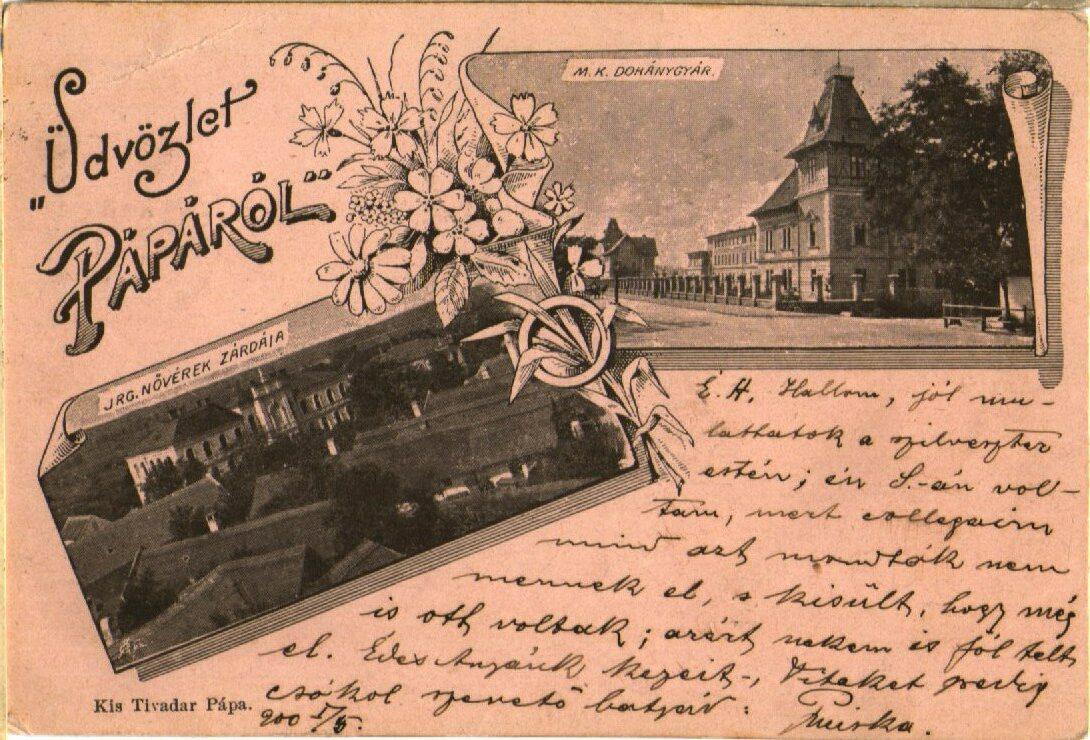 „Üdvözlet
PÁPÁRÓL"
M. K. DOHÁNYGYÁR.
JRG. NŐVÉREK ZÁRDÁJA
É. H. Hallom, jól mu-
lathatok a szilveszter
estén; én S.-án vol-
tam, mert collegáim
mind azt mondták nem
mennek el, s kisült, hogy még
is ott voltak; azért nekem is jól telt
el. Édes Anyánk kezeit-, Titeket pedig
csókol szerető bátyád:
900 I/5.
Kis Tivadar Pápa.